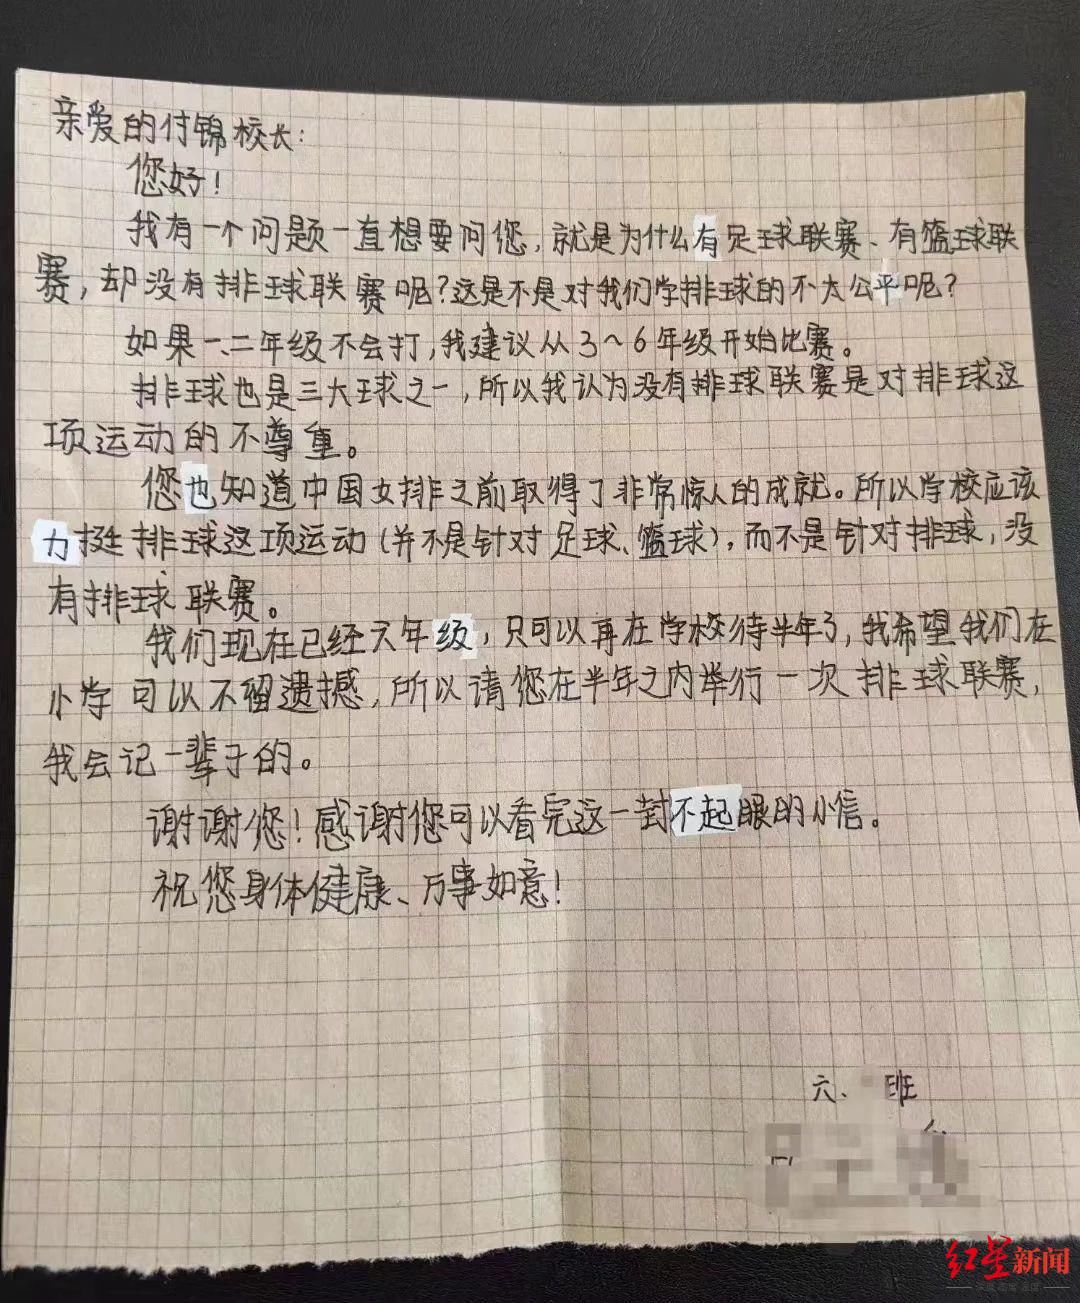 亲爱的付锦校长：
您好！
我有一个问题一直想要问您，就是为什么有足球联赛、有篮球联
赛，却没有排球联赛呢？这是不是对我们学排球的不太公平呢？
如果一、二年级不会打，我建议从3～6年级开始比赛。
排球也是三大球之一，所以我认为没有排球联赛是对排球这
项运动的不尊重。
您也知道中国女排之前取得了非常惊人的成就。所以学校应该
力挺排球这项运动（并不是针对足球、篮球），而不是针对排球，没
有排球联赛。
我们现在已经六年级，只可以再在学校待半年了，我希望我们在
小学可以不留遗憾，所以请您在半年之内举行一次排球联赛，
我会记一辈子的。
谢谢您！感谢您可以看完这一封不起眼的小信。
祝您身体健康、万事如意！
六、班
红星新闻